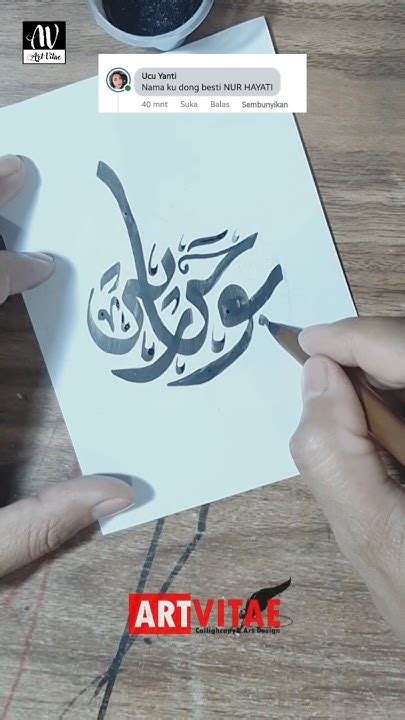 AV
Art Vitae
Ucu Yanti
Nama ku dong besti NUR HAYATI
40 mnt Suka Balas Sembunyikan
نور حياتي
ARTVITAE
Callighrapy & Art Design